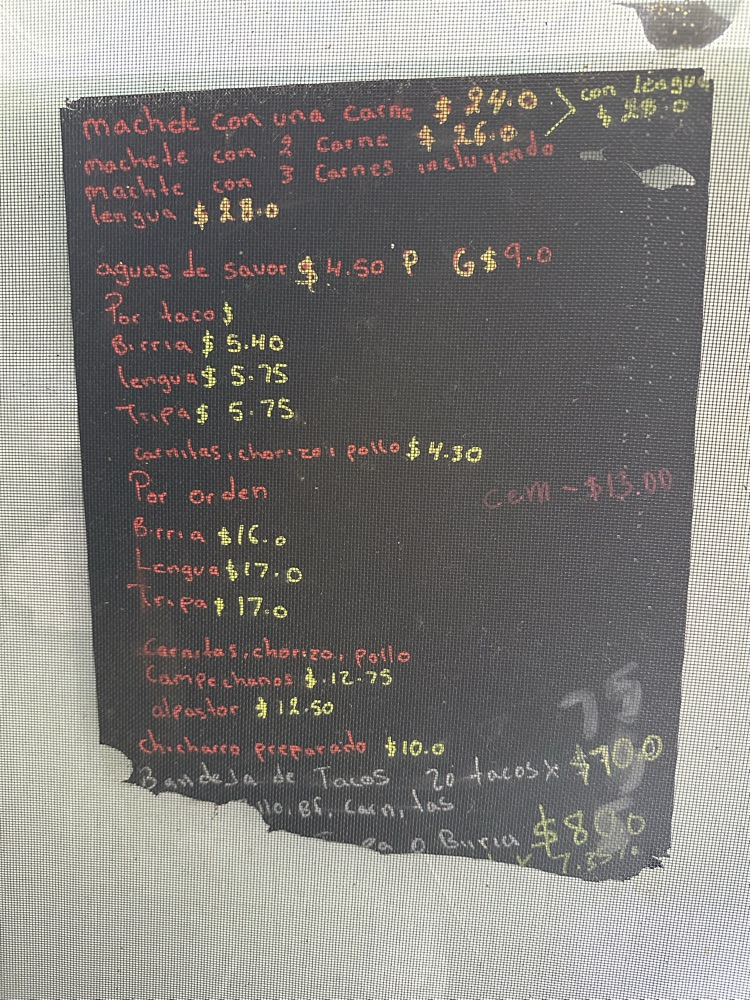 machete con una carne $ 24.0 > con lengua
$ 28.0
machete con 2 Carne $ 26.0
machte con 3 Carnes incluyendo
lengua $ 28.0
aguas de savor $ 4.50 P G $ 9.0
Por taco $
Birria $ 5.40
lengua $ 5.75
Tripa $ 5.75
carnitas, chorizo, pollo $ 4.30
Por orden
cem - $13.00
Birria $16.0
Lengua $17.0
Tripa $ 17.0
Carnitas, chorizo, pollo
Campechanos $.12.75
alpastor $ 12.50
75
chicharro preparado $10.0
Bandeja de Tacos 20 tacos x $70.0
Carnitas
o Birria $80.0